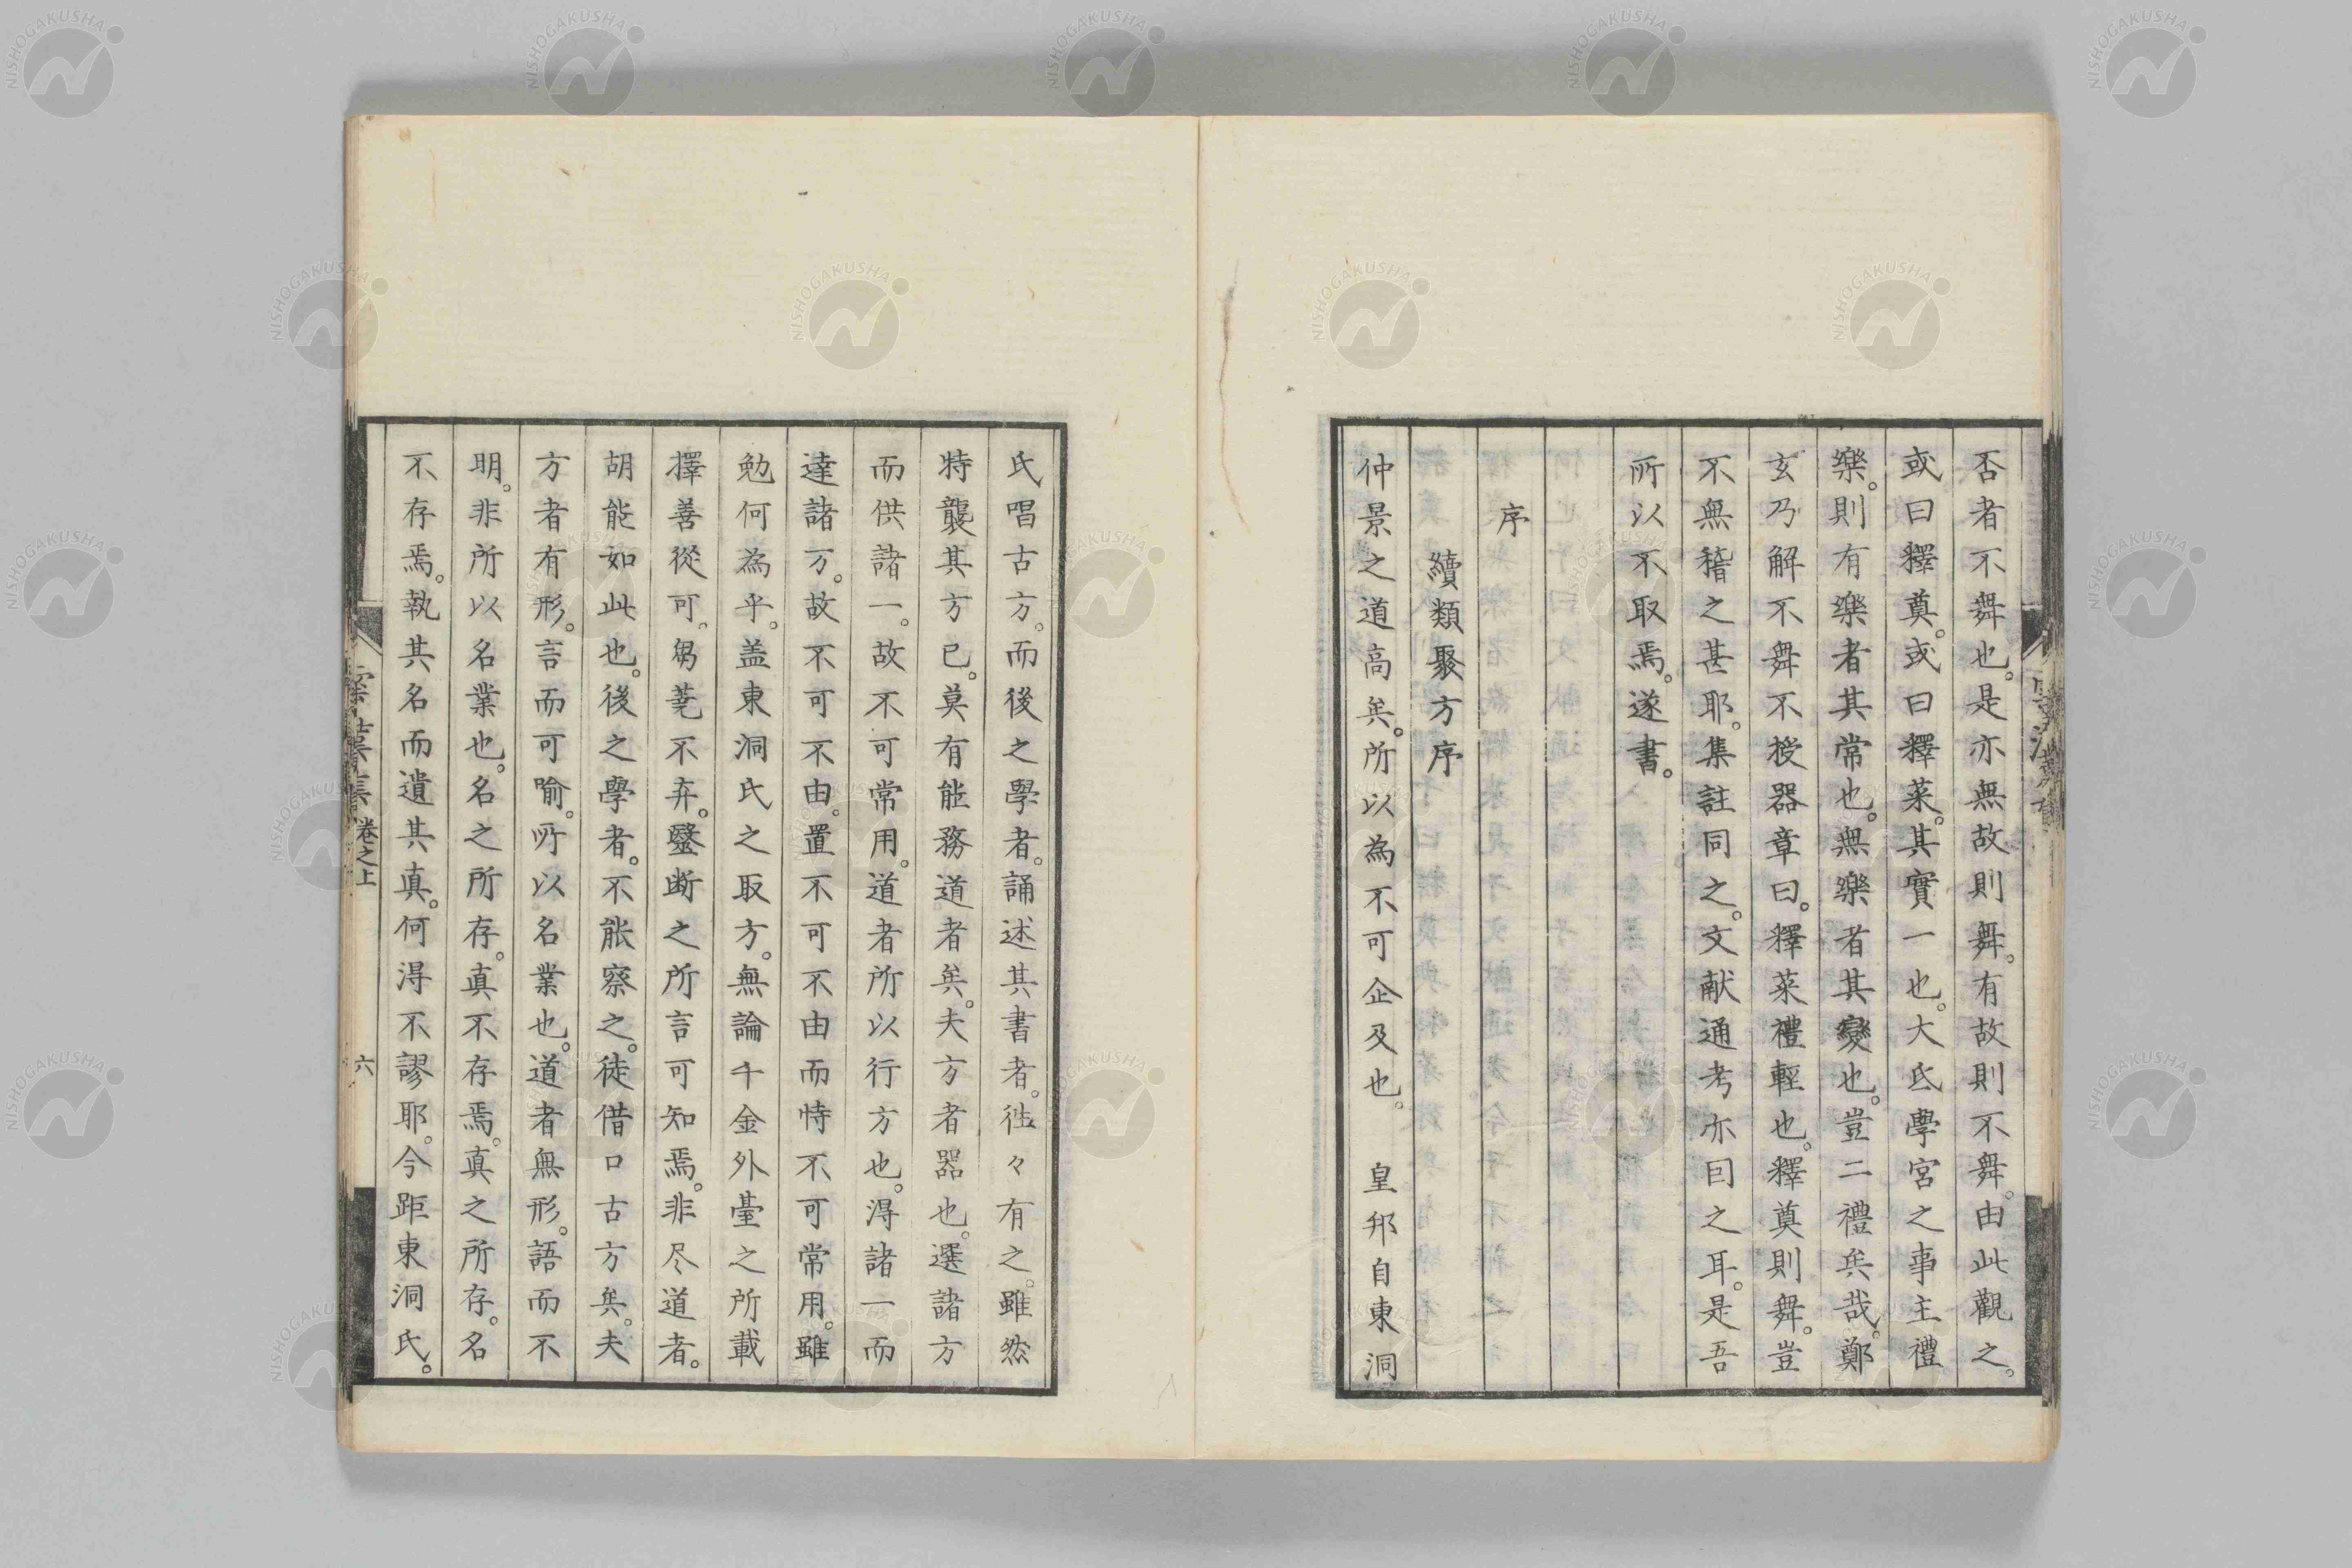 否者不舞也。是亦無故則舞。有故則不舞。由此觀之。
或曰釋奠。或曰釋菜。其實一也。大氐學宮之事主禮
樂。則有樂者其常也。無樂者其變也。豈二禮兵哉。鄭
玄乃解不舞不授器章曰。釋菜禮輕也。釋奠則舞。豈
不無稽之甚耶。集註同之。文献通考亦囙之耳。是吾
所以不取焉。遂書。
序
續類聚方序
仲景之道高矣。所以為不可企及也。 皇邦自東洞
氏唱古方。而後之學者。誦述其書者。徃々有之。雖然
特襲其方已。莫有能務道者矣。夫方者器也。選諸方
而供諸一。故不可常用。道者所以行方也。淂諸一而
達諸方。故不可不由。置不可不由而恃不可常用。雖
勉何為乎。盖東洞氏之取方。無論千金外臺之所載
擇善從可。芻蕘不弃。毉断之所言可知焉。非尽道者。
胡能如此也。後之學者。不能察之。徒借口古方矣。夫
方者有形。言而可喻。所以名業也。道者無形。語而不
明。非所以名業也。名之所存。真不存焉。真之所存。名
不存焉。執其名而遺其真。何淂不謬耶。今距東洞氏。
卷之上
六
NISHOGAKUSHA